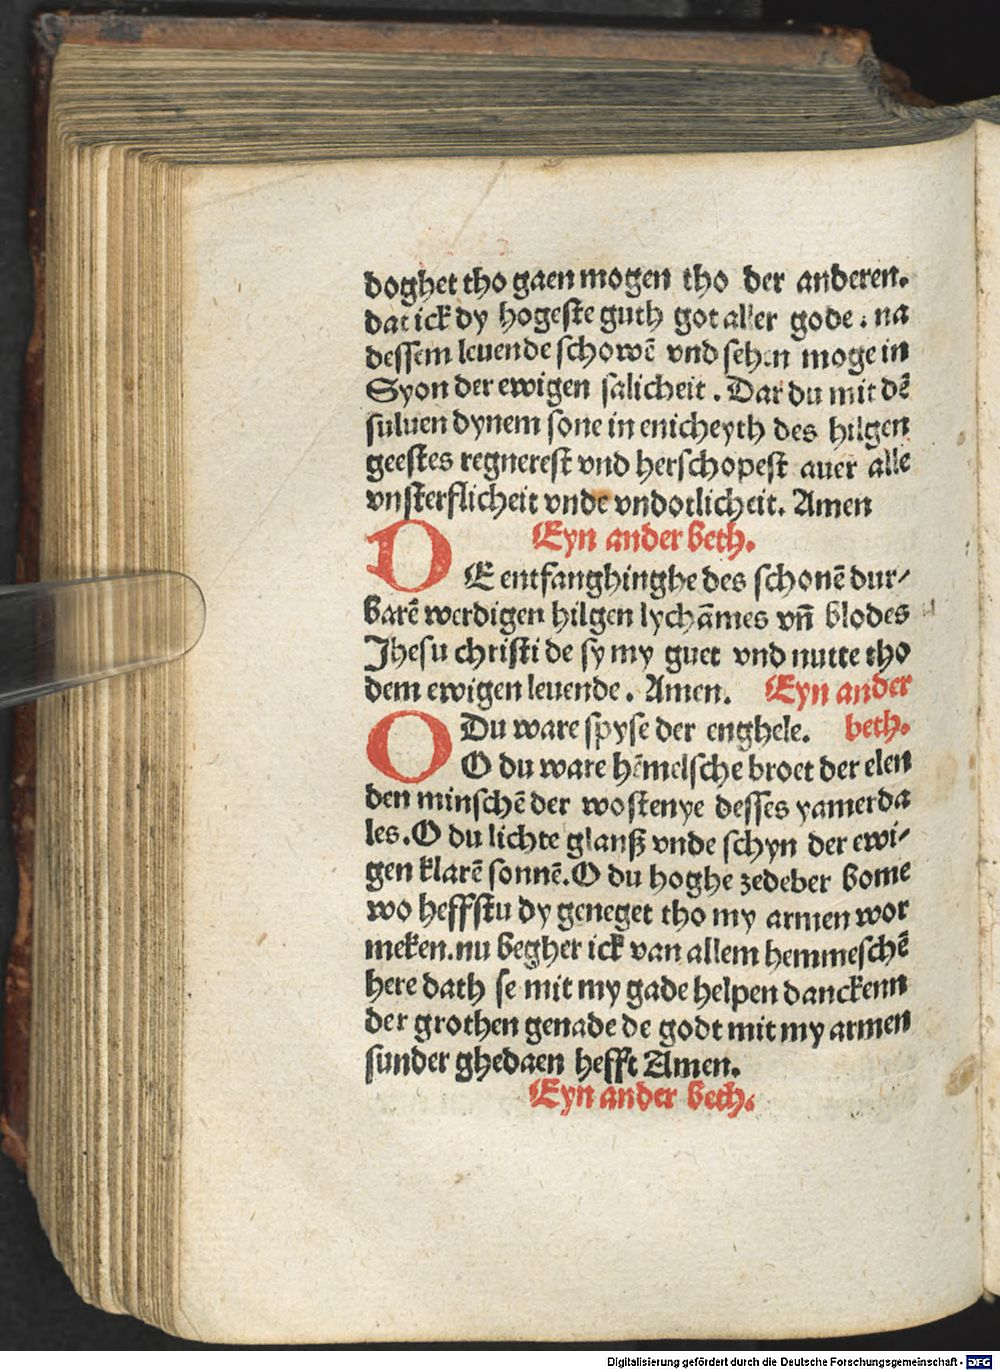 doghet tho gaen mogen tho der anderen.
dat ick dy hogeste guth got aller gode . na
dessem leuende schowē vnd sehen moge in
Syon der ewigen salicheit . Dar du mit dē
suluen dynem sone in enicheyth des hilgen
geestes regnerest vnd herschopest auer alle
vnsterflicheit vnde vndotlicheit. Amen
Eyn ander beth.
DE entfanghinghe des schonē dur-
barē werdigen hilgen lychāmes vn̄ blodes
Jhesu christi de sy my guet vnd nutte tho
dem ewigen leuende. Amen. Eyn ander
beth.
O Du ware spyse der enghele.
O du ware hēmelsche broet der elen
den minschē der wostenye desses yamerda
les. O du lichte glanß vnde schyn der ewi-
gen klarē sonnē. O du hoghe zedeber bome
wo heffstu dy geneget tho my armen wor
meken. nu begher ick van allem hemmeschē
here dath se mit my gade helpen danckenn
der grothen genade de godt mit my armen
sunder ghedaen hefft Amen.
Eyn ander beth.
Digitalisierung gefördert durch die Deutsche Forschungsgemeinschaft - DFG